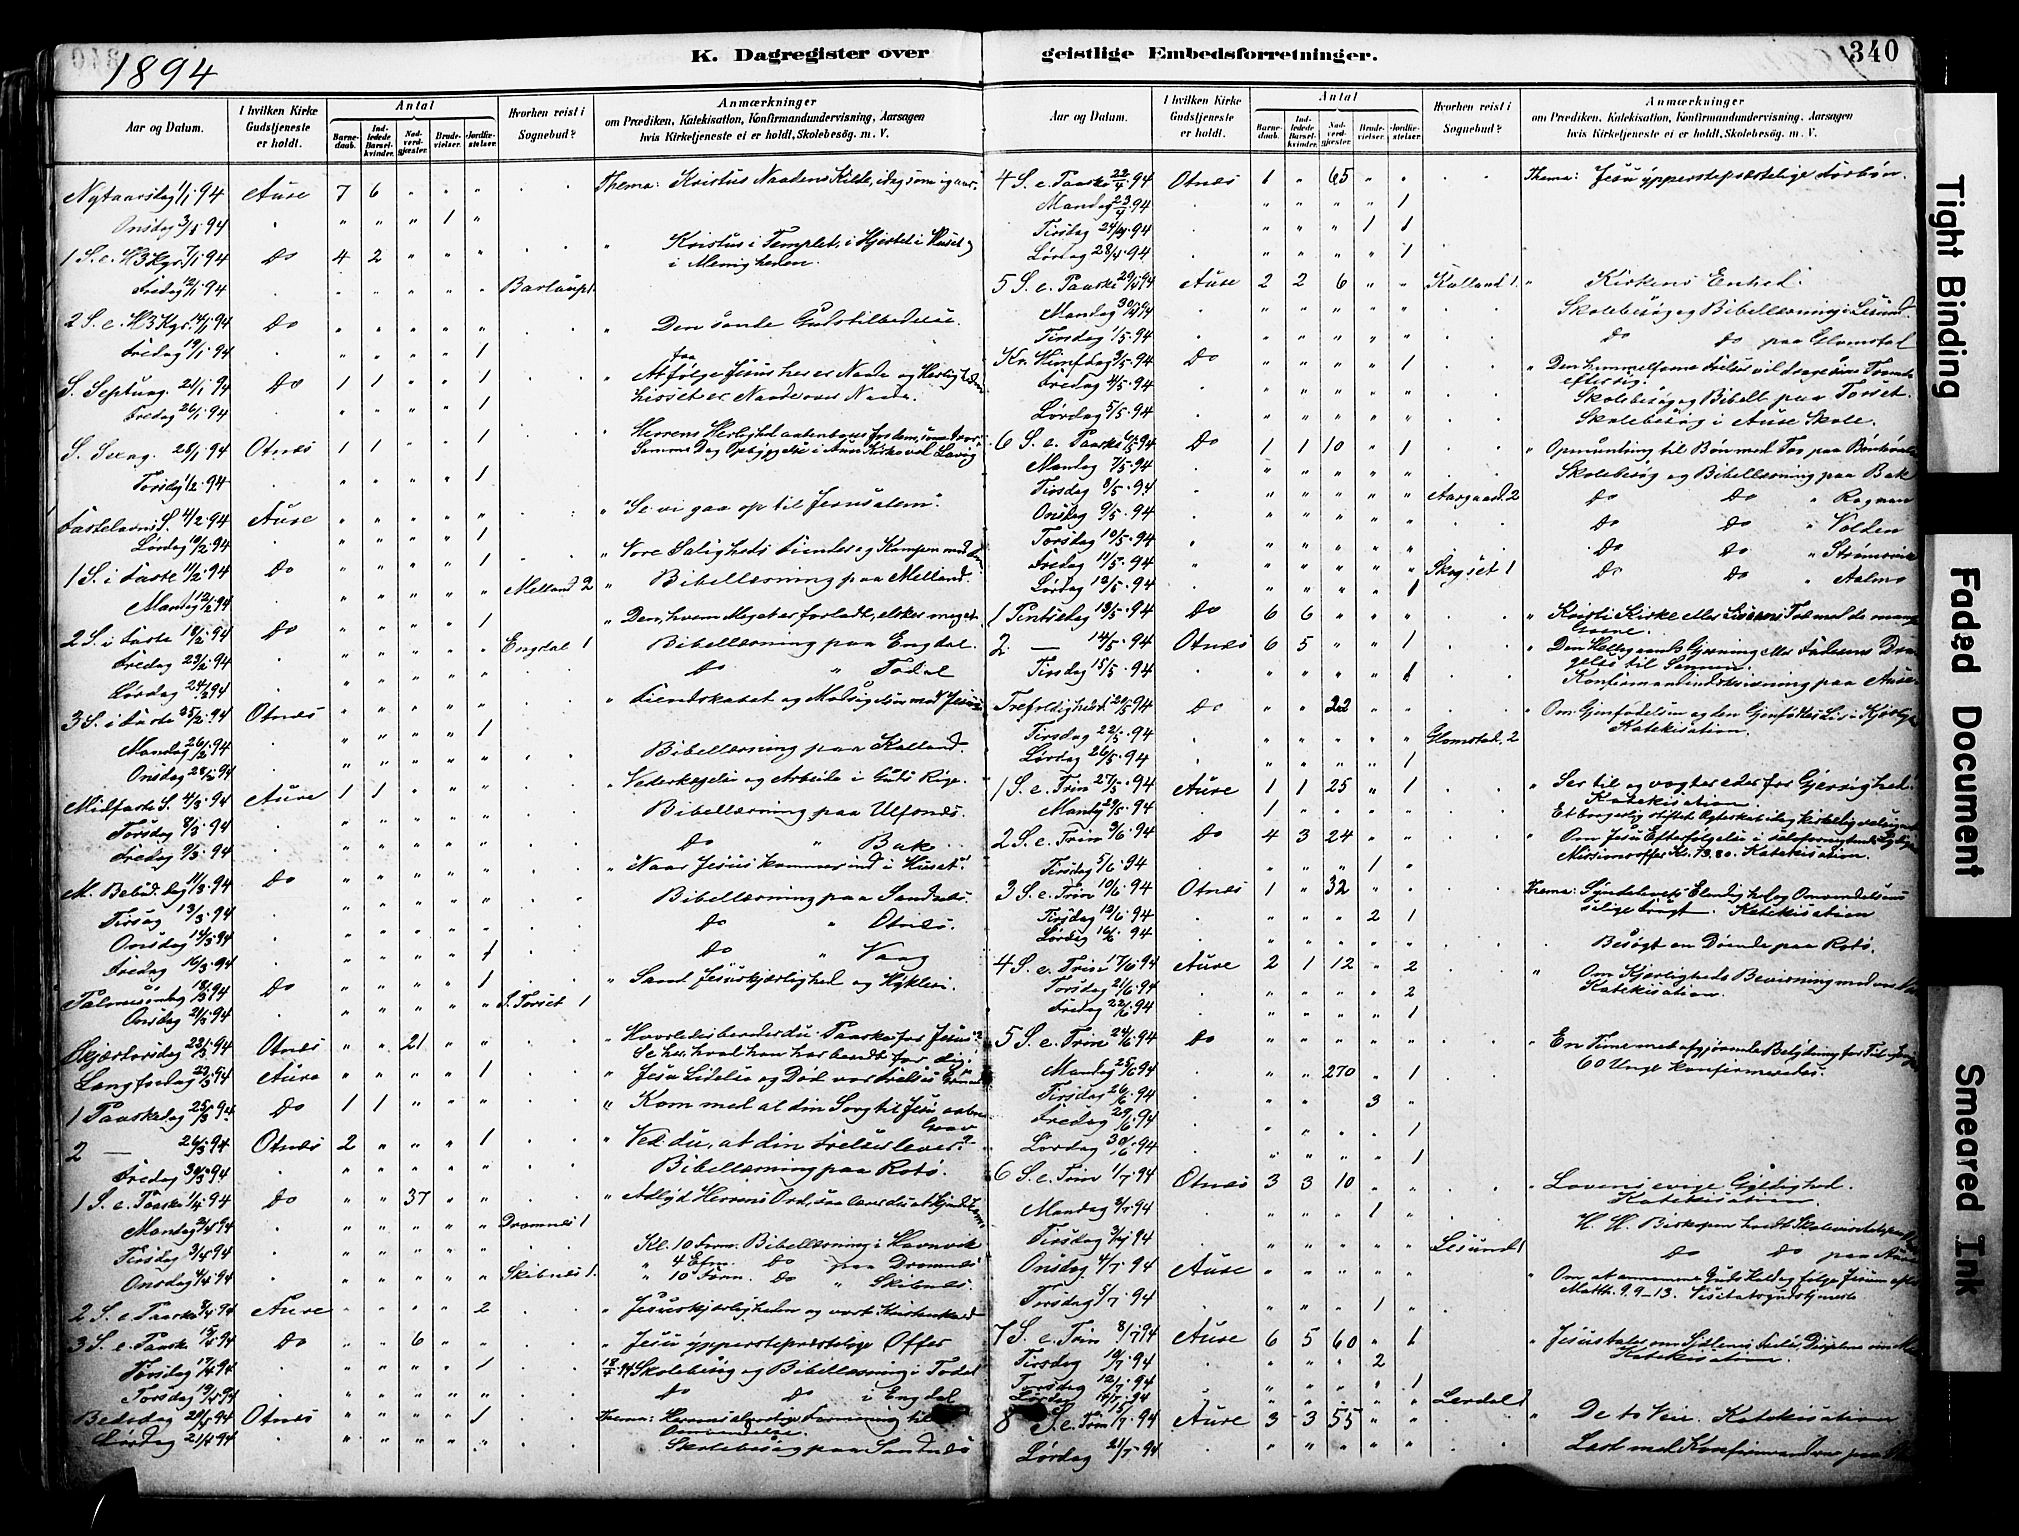 K. Dagregister over geistlige Embedsforretninger.
340
1894
Aar og Datum.
I hvilken Kirke Gudstjeneste er holdt.
Antal
Barnedaab.
Indledede Barselkvinder.
Nadverdgjæster.
Brudevielser.
Jordfæstelser.
Hvorhen reist i Sognebud?
Anmærkninger
om Prædiken, Katekisation, Konfirmandundervisning, Aarsagen
hvis Kirketjeneste ei er holdt, Skolebesög. m. V.
Nytaarsdag 1/1 94 Aure 7 6 " " " Thema: Kristus Naadens Kilde, idag som igaar.
Onsdag 3/1 94 " " " 1 "
1 S. e. H3Kgr. 7/1 94 Do 4 2 " " " " Kristus i Templet, i Hjertet i Huset og
i Menigheden.
Fredag 12/1 94
2 S. e. H3Kgr. 14/1 94 Do " " " " " " Den sande Gudstilbedelse.
Fredag 19/1 94 " " " " 1
S. Septuag. 21/1 94 Do 1 1 " " 1 " At følge Jesus her er Naade og
Livset er Naade over Naade.
Fredag 26/1 94 " " " " 1
S. Sexag. 28/1 94 Otnes 1 1 " " 1
Torsdag 1/2 94 " " " " 1
Fastelavns S. 4/2 94 Aure " " " " " "Se vi gaa op til Jerusalem".
Lørdag 10/2 94 " " " " 1
1 S. i Faste 11/2 94 Do " " " " 1 " Vore Saligheds Fiender og Kampen med
Mandag 12/2 94 " " " " " Melland 2 Bibellæsning paa Melland.
2 S. i Faste 18/2 94 Do " " " " 1 " Den, hvem Meget er forladt, elsker meget.
Fredag 23/2 94 " " " " " Engdal 1 Bibellæsning paa Engdal.
Lørdag 24/2 94 Do " Todal
3 S. i Faste 25/2 94 Otnes " " " " " " Fiendskabet og Modsigelsen mod Jesus
Mandag 26/2 94 " " " " 1
Onsdag 28/2 94 Bibellæsning paa Kalland.
Midfaste S. 4/3 94 Aure 1 1 " " " " Vederkvægelse og Arbeide i Guds Rige.
Torsdag 8/3 94 Bibellæsning paa Ulfsnes.
Fredag 9/3 94 Do " Bak
M. Bebud. dag 11/3 94 Do " " " " " "Naar Jesus kommer ind i Huset".
Tirsdag 13/3 94 Bibellæsning paa Sandnes.
Onsdag 14/3 94 Do " Otnes.
Fredag 16/3 94 " " " " 1 Do " Vaag
Palmesøndag 18/3 94 Do " " " " 1 " Sand Jesuskjærlighed og Hykleri.
Onsdag 21/3 94 " " " " " S. Torset 1
Skjærtorsdag 22/3 94 Otnes " " 21 " " "Hvorledes bereder du Paaske for Jesus?
Se her, hvad han har beredt for dig!
Langfredag 23/3 94 Aure " " " " 1 " Jesu Lidelse og Død vor Frelses Grund
1 Paaskedag 25/3 94 Do 1 1 " " " " Kom med al din Sorg til Jesu aabne
Grav
2 — 26/3 94 Otnes 2 " " " 1 " Ved du, at din Frelser lever?
Fredag 30/3 94 Bibellæsning paa Rotø.
1 S. e. Paaske 1/4 94 Do " " 37 " " " Adlyd Herrens Ord,
Mandag 2/4 94 " " " " " Dromnes 1
Tirsdag 3/4 94 Kl. 10 Form. Bibellæsning i Havnvik
" 4 Efm. Do paa Dromnes
Onsdag 4/4 94 " " " " " Skibnes 1. " 10 Form. Do " Skibnes.
2 S. e. Paaske 8/4 94 Aure " " " " 2 " Jesuskjærligheden og vort
3 S. e. Paaske 15/4 94 Do " " 6 " " " Jesu ypperstepræstelige Offer
Tirsdag 17/4 94 " " " " 1 18/4 94 Skolebesøg og Bibellæsning i Todal
Torsdag 19/4 94 Do Do i Engdal
Bededag 20/4 94 Otnes " " " " 1 Thema: Herrens alvorlige Formaning til
Omvendelse.
Lørdag 21/4 94 Skolebesøg paa Sandnes
Aar og Datum.
I hvilken Kirke Gudstjeneste er holdt.
Antal
Barnedaab.
Indledede Barselkvinder.
Nadverdgjæster.
Brudevielser.
Jordfæstelser.
Hvorhen reist i Sognebud?
Anmærkninger
om Prædiken, Katekisation, Konfirmandundervisning, Aarsagen
hvis Kirketjeneste ei er holdt, Skolebesög. m. V.
4 S. e. Paaske 22/4 94 Otnes 1 " 65 " " Thema: Jesu ypperstepræstelige Forbøn.
Mandag 23/4 94 " " " " 1
Tirsdag 24/4 94 " " " 1 1
Lørdag 28/4 94 " " " " 1
5 S. e. Paaske 29/4 94 Aure 2 2 6 " " Kalland 1. " Kirkens Enhed.
Mandag 30/4 94 Skolebesøg og Bibellæsning i Lesund
Tirsdag 1/5 94 Do Do paa Glomstad
Kr. Himfdag 3/5 94 Do " " " " 1 " Den himmelfarne Frelser vil drage
efter sig.
Fredag 4/5 94 Skolebesøg og Bibell. paa Torset.
Lørdag 5/5 94 Skolebesøg i Aure Skole.
6 S. e. Paaske 6/5 94 Do 1 1 10 " 1 " Opmuntring til Bøn med
Mandag 7/5 94 Skolebesøg og Bibellæsning paa Bak
Tirsdag 8/5 94 " " " " " Aargaard 2 Do Do " Rognan
Onsdag 9/5 94 Do Do " Volden
Torsdag 10/5 94 Do Do " Strømsvik
Fredag 11/5 94 " " " " " Skogset 1 Do Do " Aalmo
Lørdag 12/5 94 " " " " 1
1 Pintsedag 13/5 94 Do 6 6 " " " " Kristi Kirke eller
2 — 14/5 94 Otnes 6 5 " " 1 " Den Helligaands Gjerning eller Faderens
til Sønnen.
Tirsdag 15/5 94 " " " " 1 Konfirmandindskrivning paa Aure
Trefoldighedsf. 20/5 94 Do " " 22 " " " Om Gjenfødelsen og den Gjenfødtes Liv i
Katekisation.
Tirsdag 22/5 94 " " " " " Glomstad 2
Lørdag 26/5 94 " " " " 1
1 S. e. Trin 27/5 94 Aure 1 1 25 " 1 " Ser til og vogter eder for Gjerrighed!
Katekisation.
Mandag 94 1 " " " "
2 S. e. Trin 3/6 94 Do 4 3 24 " " " Om Jesu Efterfølgelse
Missionsoffer Kr. 13.80. Katekisation.
Tirsdag 5/6 94 " " " 1 "
3 S. e. Trin 10/6 94 Otnes 1 " 32 " " Thema: Syndelivets Elendighed og Omvendelsens
salige Frugt. Katekisation
Tirsdag 12/6 94 " " " 2 1
Lørdag 16/6 94 Besøgt en Døende paa Rotø.
4 S. e. Trin 17/6 94 Aure 2 1 12 " 2 " Om Kjærligheds Bevisning
Katekisation.
Torsdag 21/6 94 " " " " 2
Fredag 22/6 94 " " " " 1
5 S. e. Trin 24/6 94 Do " En Time med afgjørende Betydning for
60 Unge konfirmeredes.
Mandag 25/6 94 " " 270 " 1
Tirsdag 26/6 94 " " " 3 "
Fredag 29/6 94 " " " " 1
Lørdag 30/6 94 " " " " 1
6 S. e. Trin 1/7 94 Otnes 3 3 10 " " " Lovens evige Gyldighed.
Katekisation
Mandag 2/7 94 " " " 1 "
Tirsdag 3/7 94 " " " " " Lesund 1 H. H. Biskopen holdt
Do Do paa Aure
Onsdag 4/7 94 Aure " " " " " " Om at annamme Guds Kald og følge Jesum
Matth. 9. 9-13. Visitatsgudstjeneste
Torsdag 5/7 94 " " " 1 "
7 S. e. Trin 8/7 94 Aure 6 5 60 " 1 " Jesus taler om
Katekisation.
Tirsdag 10/7 94 " " " 2
Torsdag 12/7 94 " " " " 1
Lørdag 14/7 94 " " " " " Lerdal 1
8 S. e. Trin 15/7 94 Aure 3 3 55 " " " De to Veie. Katekisation
Lørdag 21/7 94 Læst med Konfirmanderne paa
Tight Binding
Faded Document
Smeared Ink